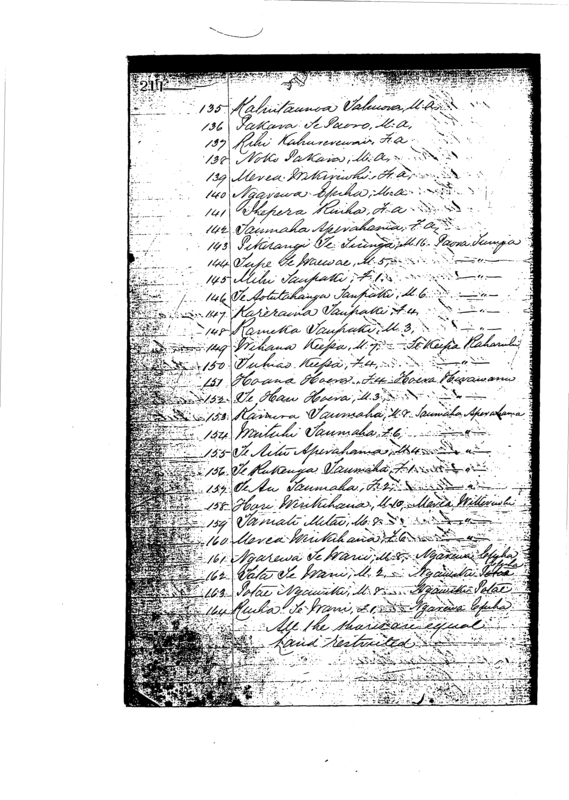 211
135 Kahuitaunoa Tahuora, M.A.
136 Pakara Te Paoro, M.A.
137 Rihi Kahuserewain, F.a
138 Noko Pakara, M.A.
139 Merea Wikiriwhi, F.a.
140 Ngarewa Epiha, M.a.
141 Shepera Ruiha, F.a
142 Taumaha Aperahama, F.a.
143 Pikirangi Te M.16. Paora
144 Tupe Te M.5. — " —
145 Mihi Taupaki, F.1. — " —
146 Te Aotutahanga Taupaki, M.6. — " —
147 Kareraina Taupaki, F.4. — " —
148 Rameka Taupaki, M.3. — " —
149 Wehana Keepa, M.7. Te Keepa
150 Tuhiao Keepa, F.4. — " —
151 Hoana Hoera, F.4. Hoera
152 Te Hau Hoera, M.3. — " —
153 Ramera Taumaha, M.8. Taumaha Aperahama
154 Waituhi Taumaha, F.6. — " —
155 Te Aitu Aperahama, M.4. — " —
156 Te Rukenga Taumaha, F.1. — " —
157 Te Au Taumaha, F.2. — " —
158 Hori Wirikihana, M.10. Merea
159 Tamati Mitai, M.8. — " —
160 Merea Wirikihana, F.6. — " —
161 Ngarewa Te Wani, M.8. Ngarewa Epiha
162 Tata Te Wani, M.2. Ngawiki Potae
163 Potae Ngawiki, M. Ngawiki Potae
164 Ruiha Te Wani, F.1. Ngarewa Epiha
All the shares are equal
Land restricted